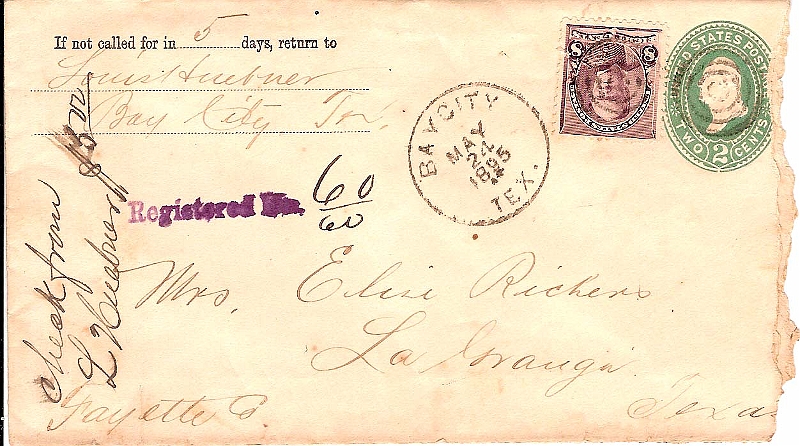 If not called for in 5 days, return to
Louis Huebner
Bay City Tex.
BAY CITY
MAY
24
1895
TEX.
8 8
UNITED STATES POSTAGE
TWO 2 CENTS
Registered No. 60
60
Check from
L Huebner
Mrs. Elise Rickers
La Grange
Fayette C. Texas